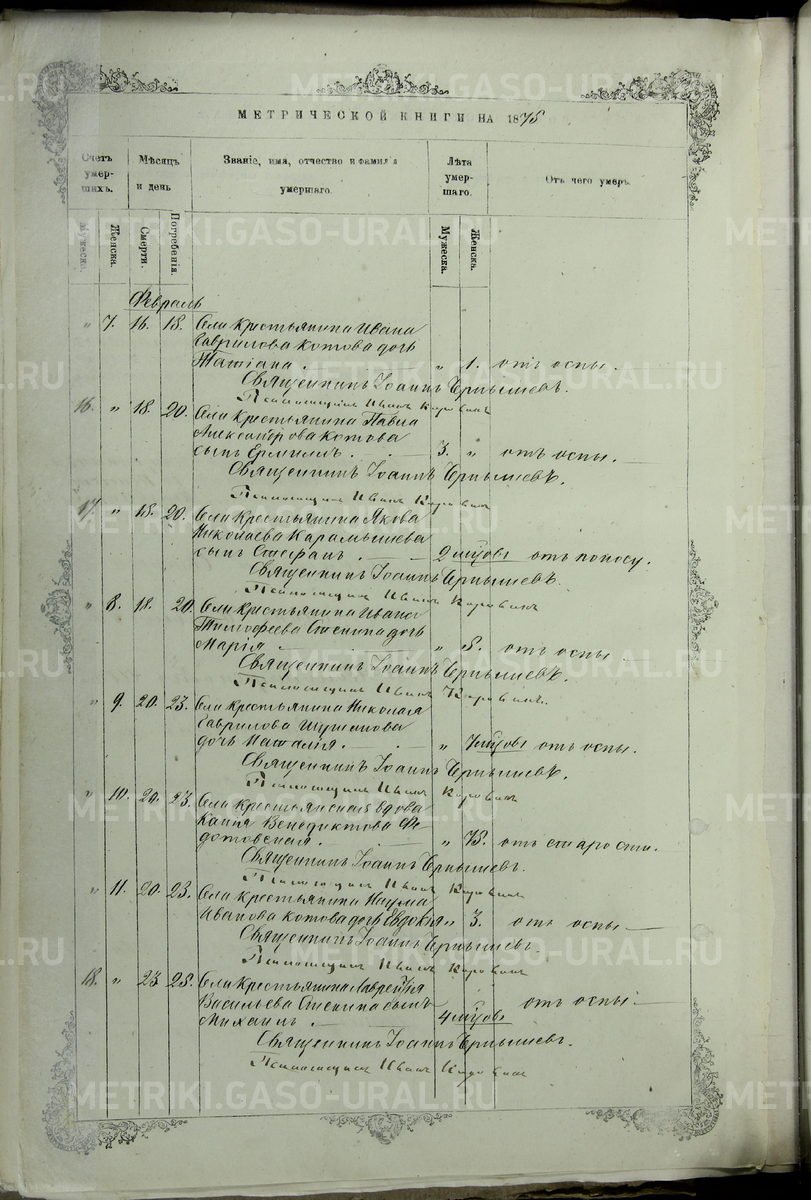 МЕТРИЧЕСКОЙ КНИГИ НА 1875
Счетъ умершихъ.
Мѣсяцъ и день
Званіе, имя, отчество и фамилія умершаго.
Лѣта умершаго.
Отъ чего умеръ.
Мужеска.
Женска.
Смерти.
Погребенія.
Мужеска.
Женскъ.
Февраль
" 7. 16. 18. Села крестьянина Ивана
Гаврилова Котова дочь
Татіана. " 1. отъ оспы.
Священникъ Іоаннъ Чернышевъ.
Псаломщикъ Иванъ Коровинъ
16. " 18. 20. Села крестьянина Павла
Александрова Котова
сынъ Ермилъ. 3. " отъ оспы.
Священникъ Іоаннъ Чернышевъ.
Псаломщикъ Иванъ Коровинъ
17. " 18. 20. Села крестьянина Якова
Николаева Карамышева
сынъ Стефанъ. 2 мѣсцовъ отъ поносу.
Священникъ Іоаннъ Чернышевъ.
Псаломщикъ Иванъ Коровинъ
" 8. 18. 20. Села крестьянина Ивана
Тимофеева Стенина дочь
Марія " 5. отъ оспы
Священникъ Іоаннъ Чернышевъ.
Псаломщикъ Иванъ Коровинъ.
" 9. 20. 23. Села крестьянина Николая
Гаврилова
дочь Наталія. " мѣсцовъ отъ оспы.
Священникъ Іоаннъ Чернышевъ.
Псаломщикъ Иванъ Коровинъ
" 10. 20. 23. Села крестьянская вдова
Венедиктова Фе-
дотовская. " 75. отъ старости.
Священникъ Іоаннъ Чернышевъ.
Псаломщикъ Иванъ Коровинъ
" 11. 20. 23. Села крестьянина Наума
Иванова Котова дочь Евдокія " 3. отъ оспы
Священникъ Іоаннъ Чернышевъ.
Псаломщикъ Иванъ Коровинъ
18. " 23 25. Села крестьянина Лаврентія
Васильева Стенина сынъ отъ оспы.
Михаилъ. 4 мѣсцовъ
Священникъ Іоаннъ Чернышевъ.
Псаломщикъ Иванъ Коровинъ
METRIKI.GASO-URAL.RU